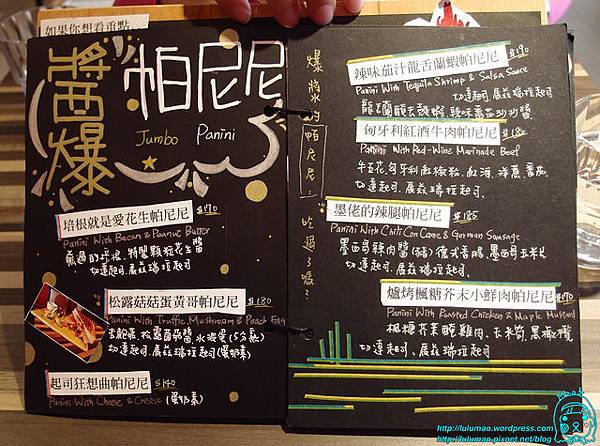 如果你想看重點
醬爆
帕尼尼
Jumbo Panini
培根就是愛花生帕尼尼 $170
Panini With Bacon & Peanut Butter
煎過的培根、特製顆粒花生醬
切達起司、莫茲瑞拉起司
松露菇菇蛋黃哥帕尼尼 $180
Panini With Truffle, Mushroom & Poach Egg
切達起司、莫茲瑞拉起司(蛋奶素)
起司狂想曲帕尼尼 $140
Panini With Cheese & Cheese (蛋奶素)
爆漿的帕尼尼!吃過了嗎?
辣味茄汁龍舌蘭蝦帕尼尼 $190
Panini With Tequila Shrimp & Salsa Sauce
切達起司、莫茲瑞拉起司
匈牙利紅酒牛肉帕尼尼 $180
Panini With Red-Wine Marinade Beef
切達起司、莫茲瑞拉起司.
墨佬的辣腿帕尼尼 $185
Panini With Chili Con Carne & German Sausage
墨西哥辣肉醬(豬)德式香腸、墨西哥玉米片
切達起司、莫茲瑞拉起司.
爐烤楓糖芥末小鮮肉帕尼尼 $170
Panini With Roasted Chicken & Maple Mustard
楓糖芥茉醃雞肉、玉米筍、黑橄欖
切達起司、莫茲瑞拉起司.
http://lulumao.wordpress.com
http://lulumao.pixnet.net/blog